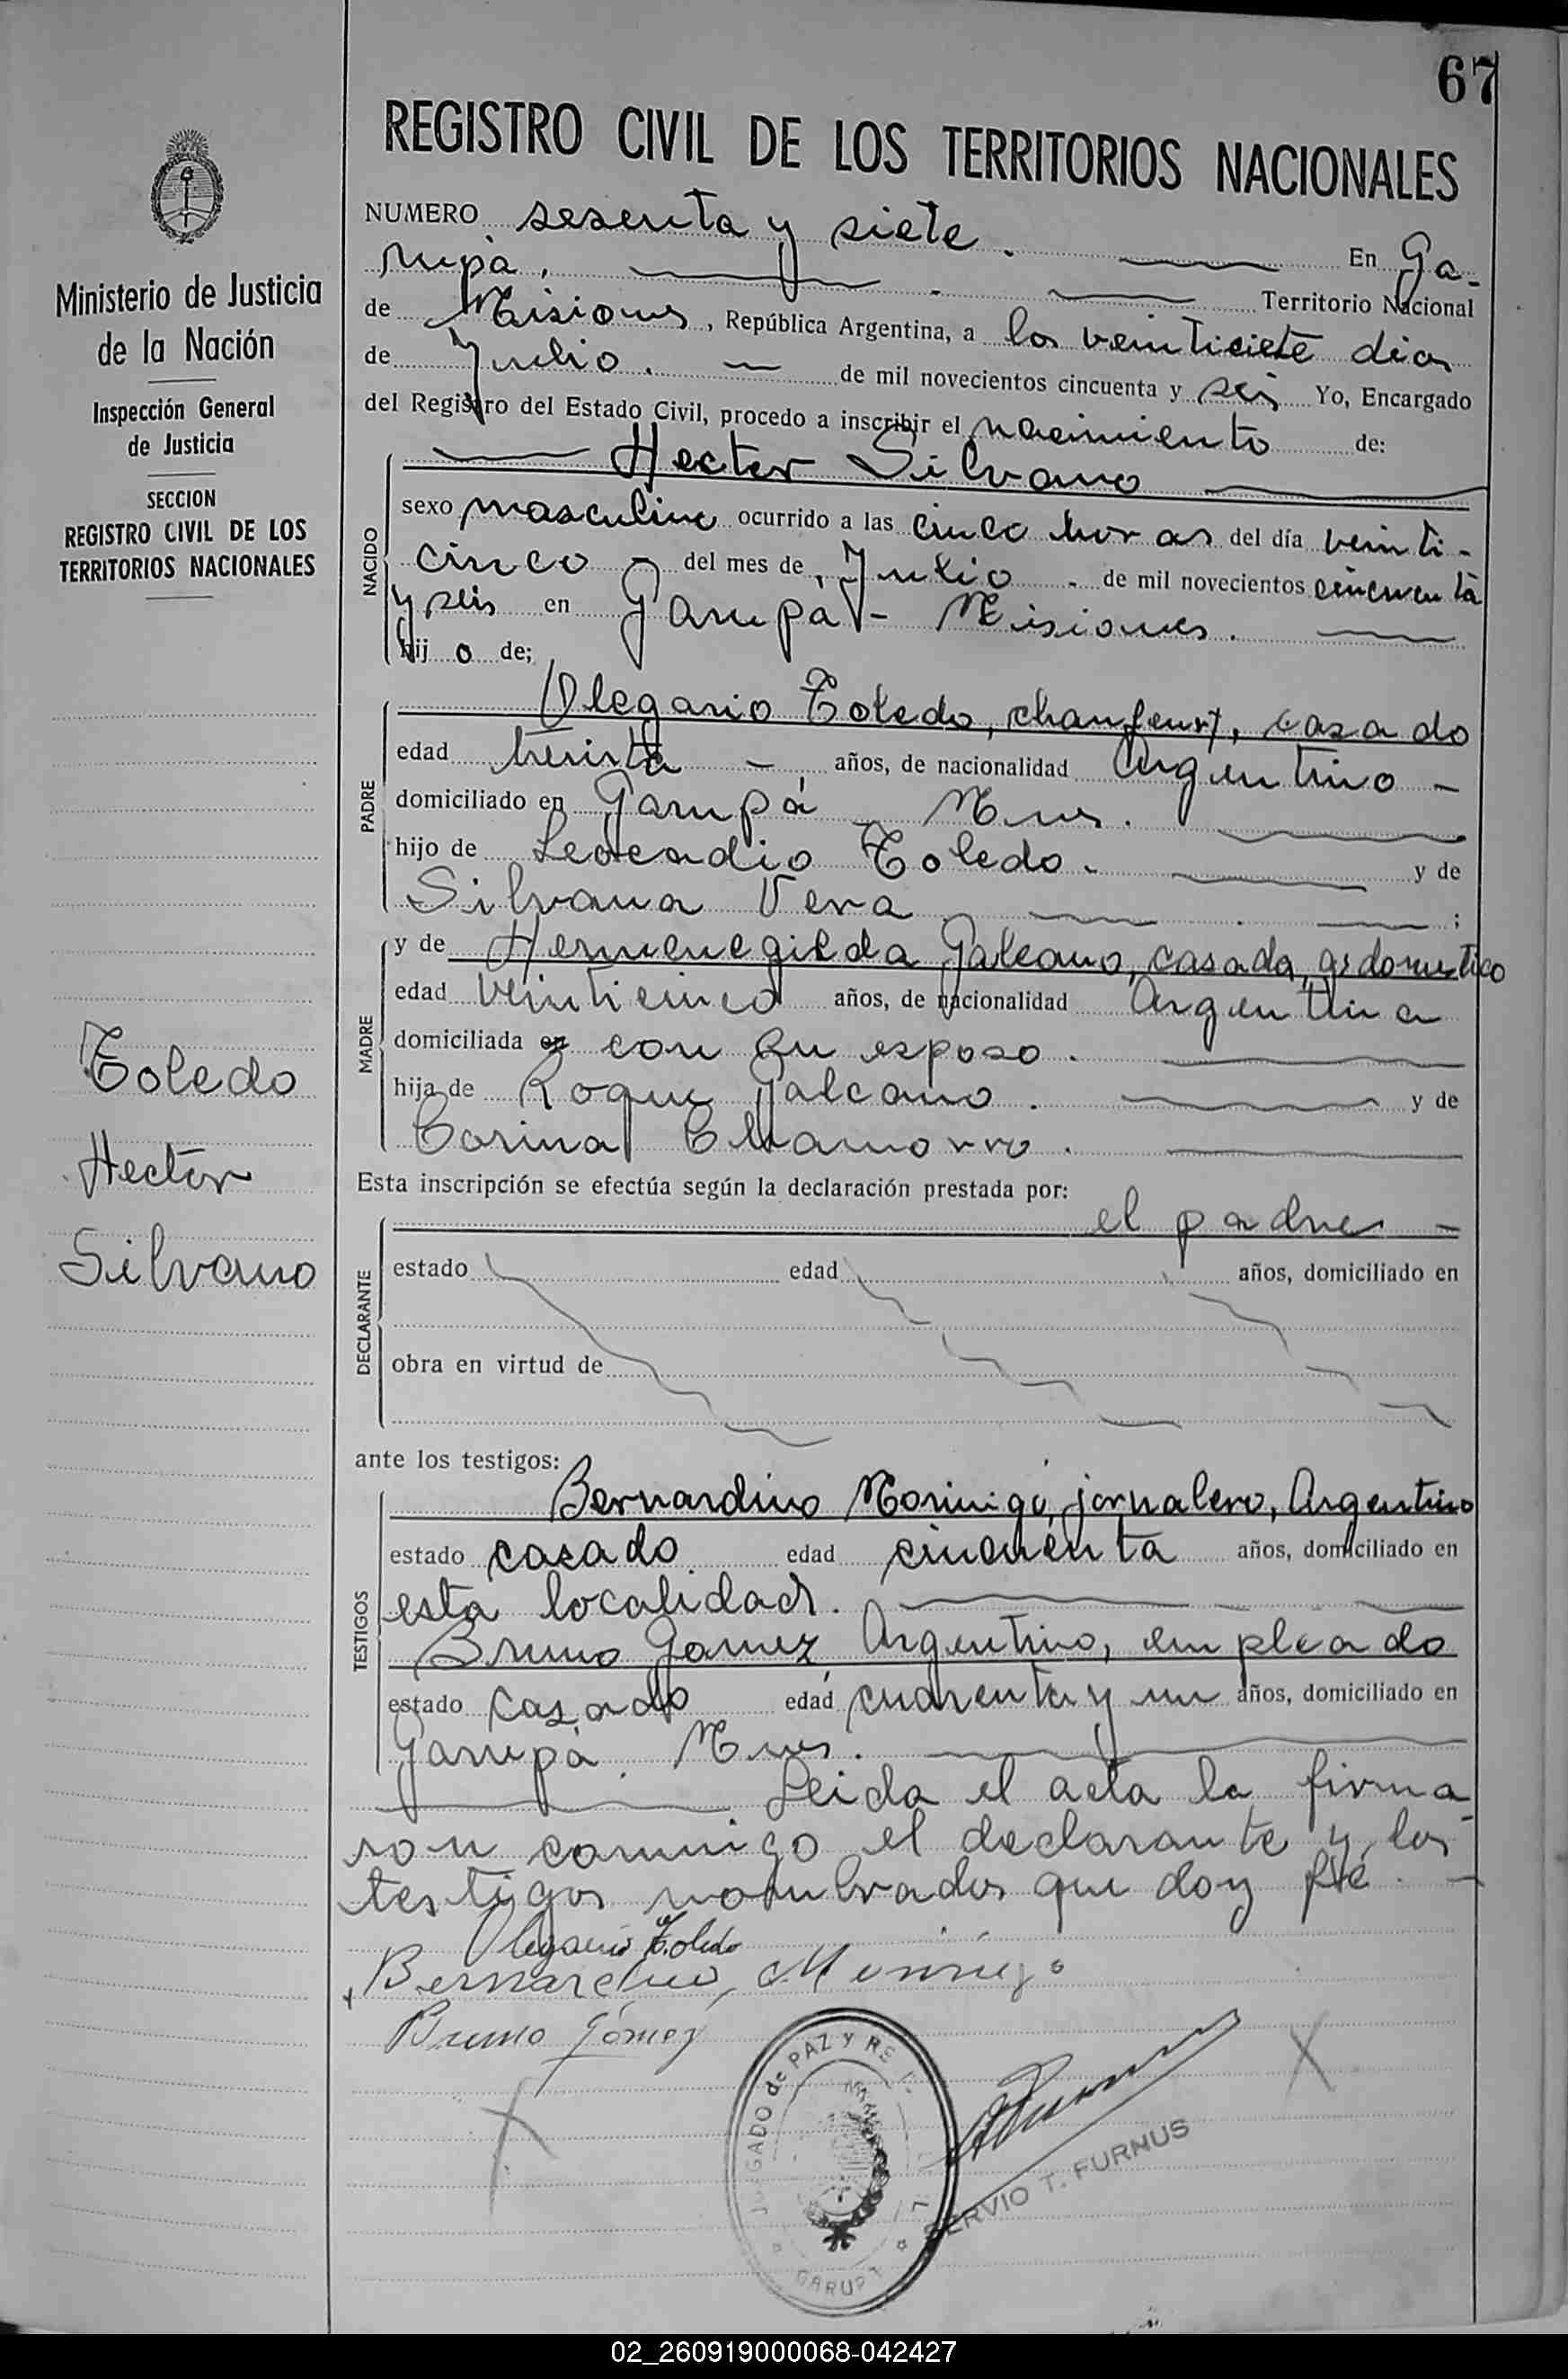 67
REGISTRO CIVIL DE LOS TERRITORIOS NACIONALES
Ministerio de Justicia
de la Nación
Inspección General
de Justicia
SECCION
REGISTRO CIVIL DE LOS
TERRITORIOS NACIONALES
Toledo
Hector
Silvano
NUMERO sesenta y siete. En Ga-
rupá, Territorio Nacional
de Misiones, República Argentina, a los veinticiete dias
de Julio. de mil novecientos cincuenta y seis Yo, Encargado
del Registro del Estado Civil, procedo a inscribir el nacimiento de:
Hector Silvano
NACIDO
sexo masculino ocurrido a las cinco horas del día veinti-
cinco - del mes de Julio - de mil novecientos cincuenta
y seis en Garupá - Misiones.
hij o de;
Olegario Toledo, chanfeur, casado
PADRE
edad treinta - años, de nacionalidad Argentino -
domiciliado en Garupá Mnes.
hijo de Leocadio Toledo. y de
Silvana Vera ;
y de Hermenegilda Galeano, casada, qs domestico
MADRE
edad veinticinco años, de nacionalidad Argentina
domiciliada en con su esposo.
hija de Roque Galeano. y de
Corina Chamorro.
Esta inscripción se efectúa según la declaración prestada por:
el padre -
DECLARANTE
estado edad años, domiciliado en
obra en virtud de
ante los testigos:
Bernardino Morinigo, jornalero, Argentino
TESTIGOS
estado casado edad cincuenta años, domiciliado en
esta localidad.
Bruno Gomez, Argentino, empleado
estado casado edad cuarenta y un años, domiciliado en
Garupá. Mnes.
Leida el acta la firma-
ron conmigo el declarante y los
testigos nombrados que doy fé. -
Olegario Toledo
Bernardino Morinigo
Bruno Gómez
JUZGADO de PAZ Y RE
GARUPA
SERVIO T. FURNUS
02_260919000068-042427